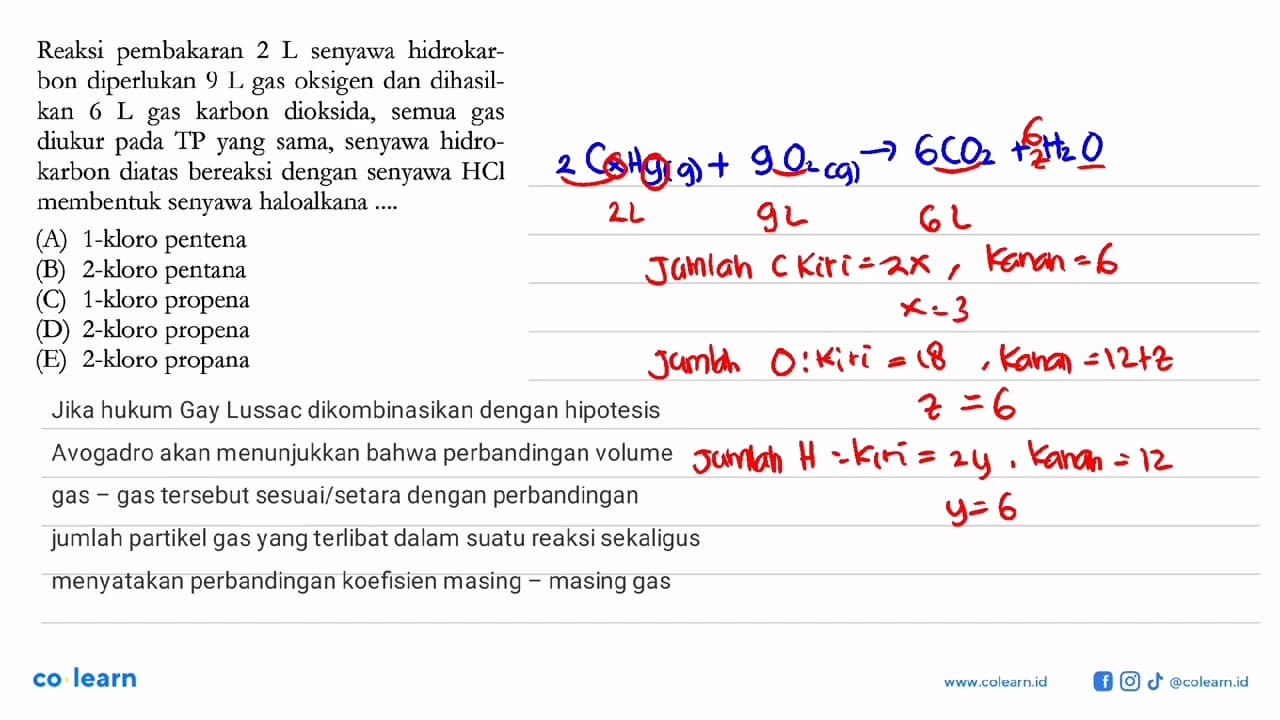 Reaksi pembakaran 2 L senyawa hidrokar-
bon diperlukan 9 L gas oksigen dan dihasil-
kan 6 L gas karbon dioksida, semua gas
diukur pada TP yang sama, senyawa hidro-
karbon diatas bereaksi dengan senyawa HCl
membentuk senyawa haloalkana ....
(A) 1-kloro pentena
(B) 2-kloro pentana
(C) 1-kloro propena
(D) 2-kloro propena
(E) 2-kloro propana
2CxHy(g) + 9O₂(g) → 6CO₂ + 6H₂O
2L 9L 6L
Jumlah C Kiri = 2x, Kanan = 6
x = 3
Jumlah O: Kiri = 18, Kanan = 12+z
z = 6
Jumlah H = Kiri = 2y, Kanan = 12
y = 6
Jika hukum Gay Lussac dikombinasikan dengan hipotesis
Avogadro akan menunjukkan bahwa perbandingan volume
gas – gas tersebut sesuai/setara dengan perbandingan
jumlah partikel gas yang terlibat dalam suatu reaksi sekaligus
menyatakan perbandingan koefisien masing – masing gas
co·learn
www.colearn.id
@colearn.id